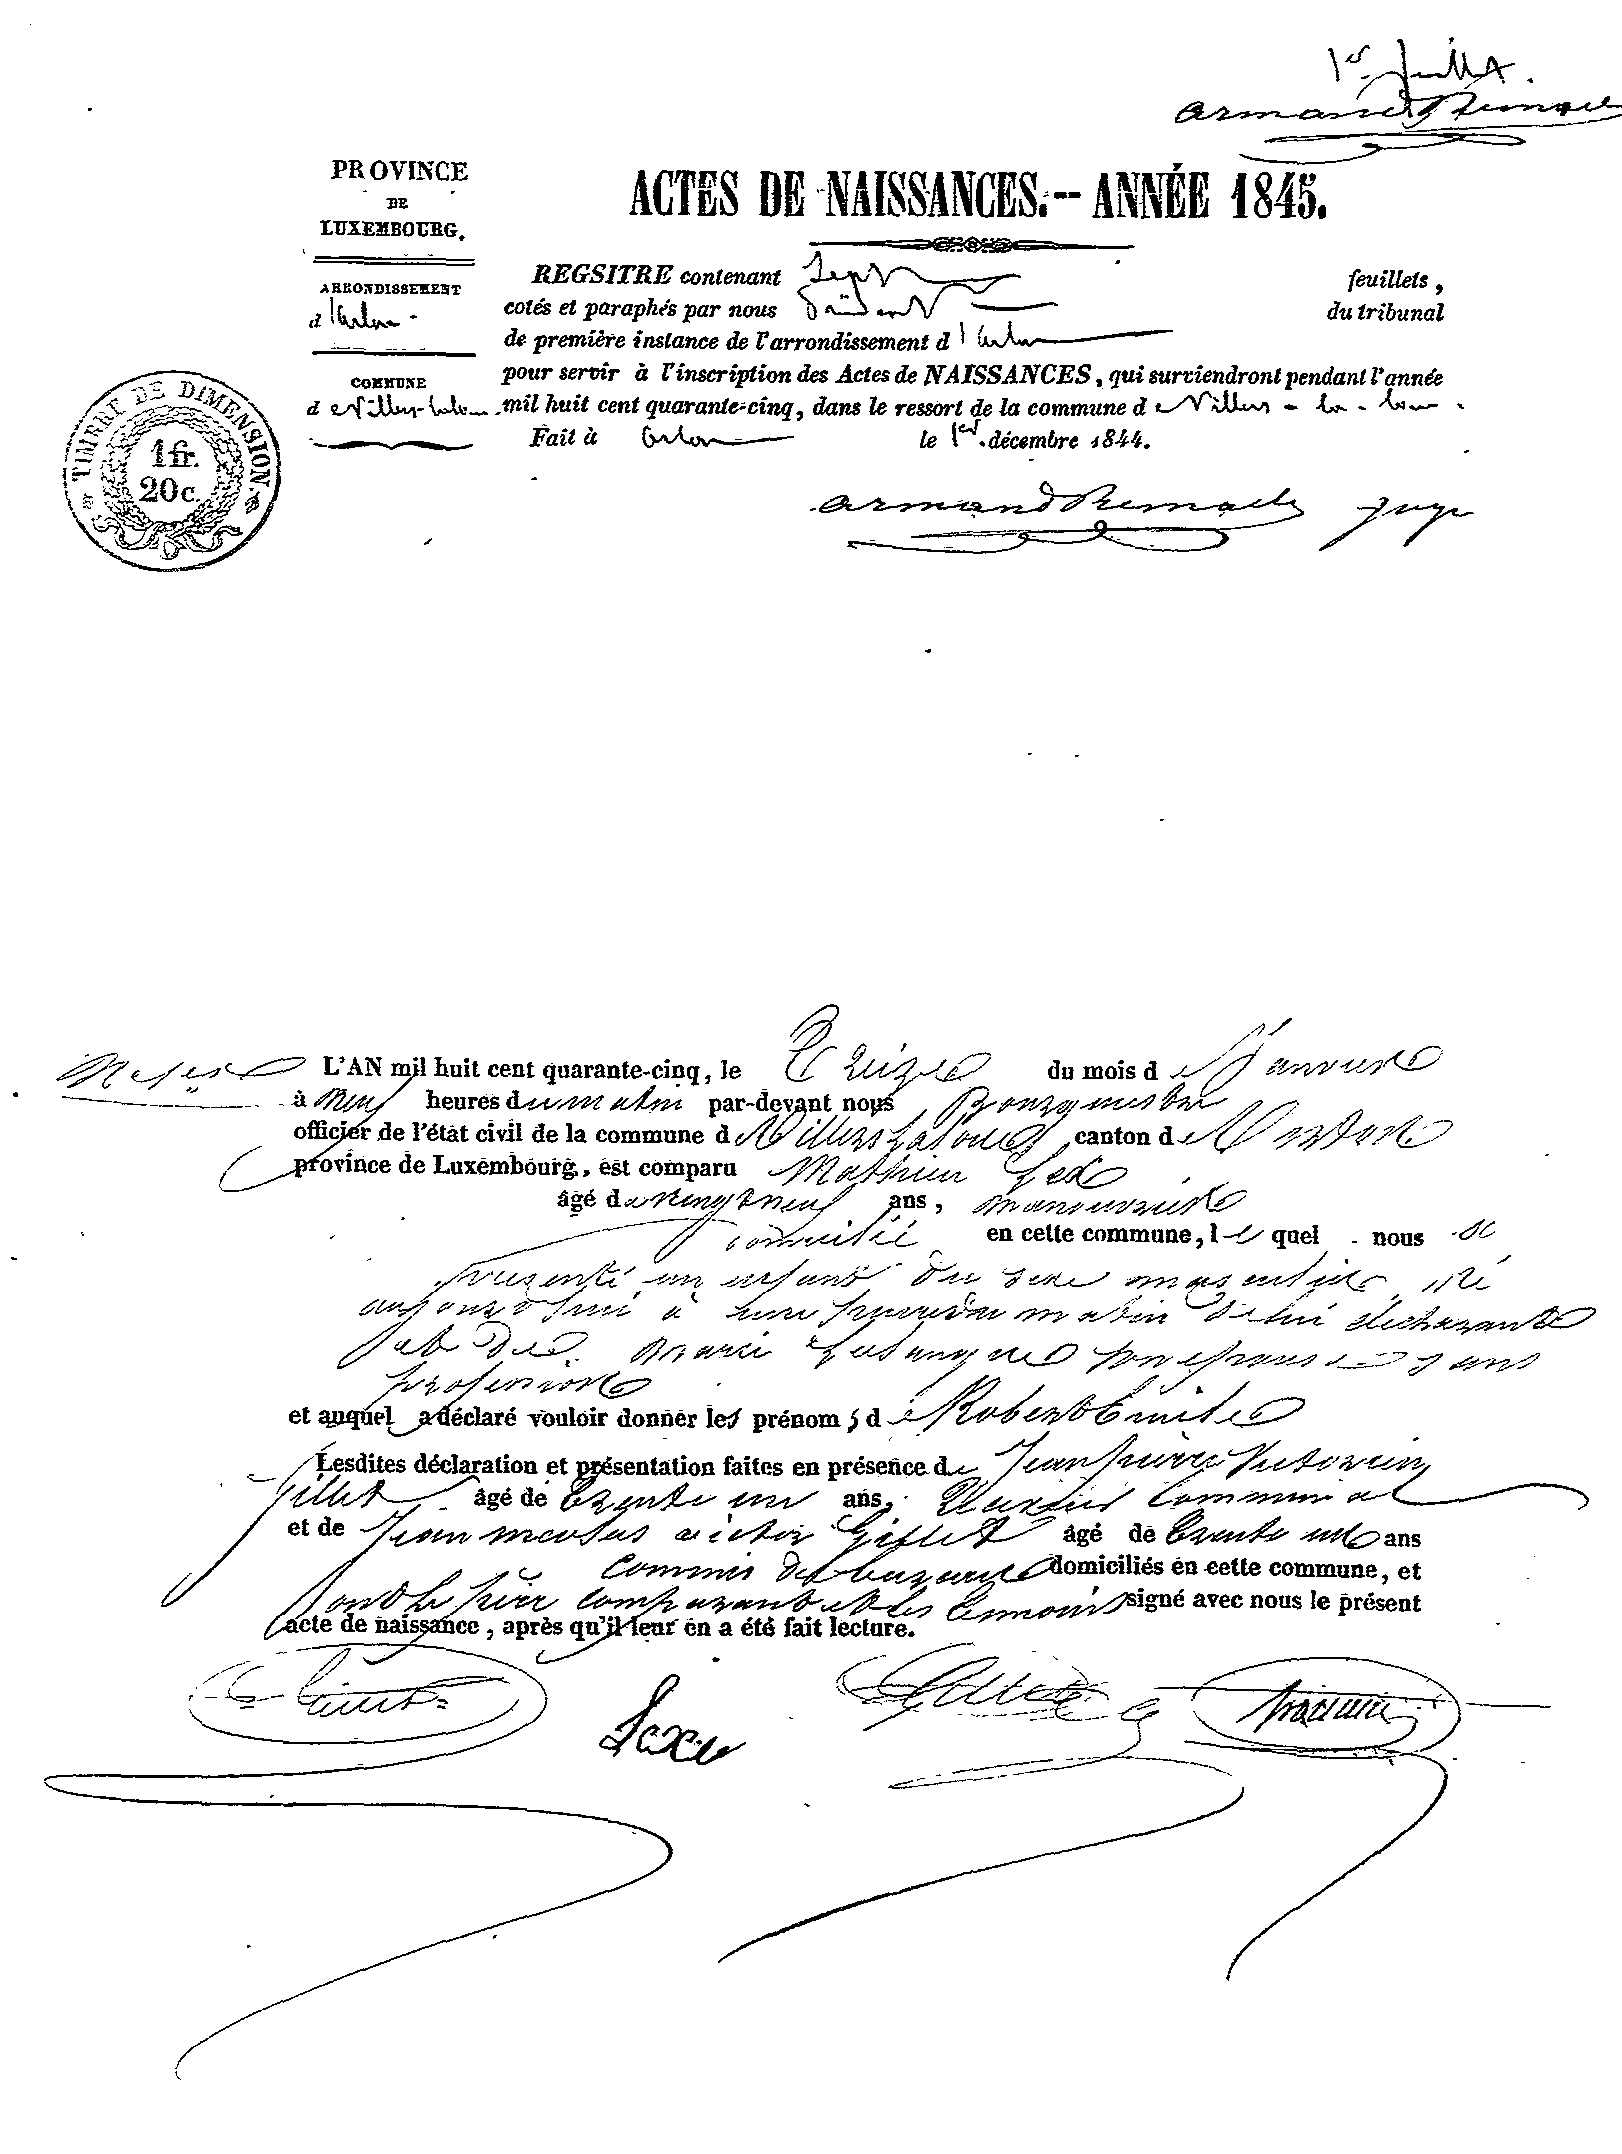 1er feuillet.
Armand Remacle
PROVINCE
DE
LUXEMBOURG.
ARRONDISSEMENT
d'Arlon.
COMMUNE
de Villers-la-loue.
TIMBRE DE DIMENSION.
1 fr.
20 c.
ACTES DE NAISSANCES.-- ANNÉE 1845.
REGSITRE contenant Sept feuillets,
cotés et paraphés par nous Président du tribunal
de première instance de l'arrondissement d'Arlon
pour servir à l'inscription des Actes de NAISSANCES, qui surviendront pendant l'année
mil huit cent quarante-cinq, dans le ressort de la commune de Villers-la-loue.
Fait à Arlon le 1er décembre 1844.
Armand Remacle Juge
L'AN mil huit cent quarante-cinq, le Treize du mois de Janvier
à neuf heures du matin par-devant nous Bourgmestre
officier de l'état civil de la commune de Villers Laloue, canton de Virton
province de Luxembourg, est comparu Mathieu
âgé de vingt neuf ans, manouvrier
domicilié en cette commune, lequel nous a
présenté un enfant du sexe masculin, né
aujourd'hui à une heure du matin de lui déclarant
et de Marie son épouse sans
profession
et auquel a déclaré vouloir donner les prénoms de Robert Emile
Lesdites déclaration et présentation faites en présence de Jean pierre Victorin
gillet âgé de trente un ans, communal
et de Jean nicolas victor Gillet âgé de trente ans
commis de domiciliés en cette commune, et
ont le père comparant et les témoins signé avec nous le présent
acte de naissance, après qu'il leur en a été fait lecture.